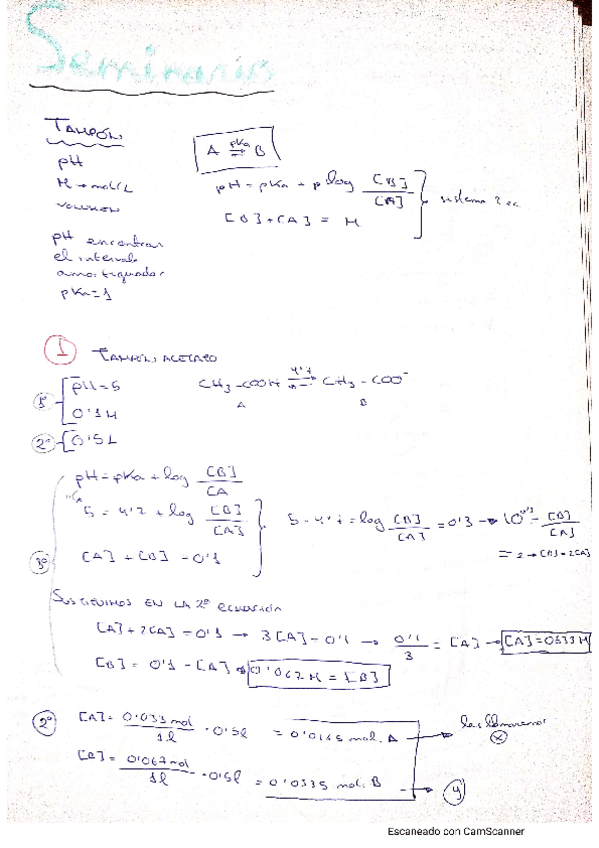 Seminario
TAMPÓN
pH
M → mol/L
VOLUMEN
pH encontrar
el intervalo
amortiguador
pKa = 1
A ⇌ B
pKa
pH = pKa + p log [B]/[A]
[B] + [A] = M
sistema 2 ec
1 TAMPÓN ACETATO
1º
pH = 5
0'1 M
2º 0'5 L
CH3-COOH ⇌ CH3-COO⁻
4'7
A B
3º
pH = pKa + log [B]/[A]
5 = 4'7 + log [B]/[A]
[A] + [B] = 0'1
5 - 4'7 = log [B]/[A] = 0'3 → 10^0'3 = [B]/[A]
= 2 → [B] = 2[A]
SUSTITUIMOS EN LA 2ª ecuación
[A] + 2[A] = 0'1 → 3[A] = 0'1 → 0'1/3 = [A] → [A] = 0'033 M
[B] = 0'1 - [A] → 0'067 M = [B]
2º [A] = 0'033 mol/1 l · 0'5 l = 0'0165 mol. A → las llamaremos x
[B] = 0'067 mol/1 l · 0'5 l = 0'0335 mol. B → y
Escaneado con CamScanner